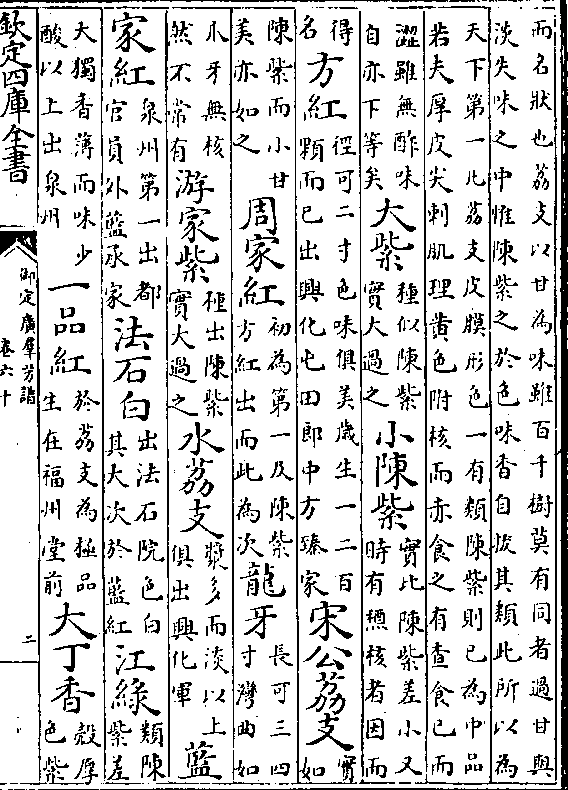 而名狀也荔支以甘為味雖百千樹莫有同者過甘與
淡失味之中惟陳紫之於色味香自拔其類此所以為
天下第一凡荔支皮膜形色一有類陳紫則已為中品
若夫厚皮尖刺肌理黄色附核而赤食之有查食已而
澀雖無酢味
自亦下等矣
大紫
種似陳紫
實大過之
小陳紫
實比陳紫差小又
時有核者因而
得
名
方紅
徑可二寸色味俱美歲生一二百
顆而已出興化屯田郎中方臻家
宋公荔支
實
如
陳紫而小甘
美亦如之
周家紅
初為第一及陳紫
方紅出而此為次
龍牙
長可三四
寸灣曲如
爪牙無核
然不常有
游家紫
種出陳紫
實大過之
水荔支
漿多而淡以上
俱出興化軍
藍
家紅
泉州第一出都
官員外藍承家
法石白
出法石院色白
其大次於藍紅
江綠
類陳
紫差
大獨香薄而味少
酸以上出泉州
一品紅
於荔支為極品
生在福州堂前
大丁香
殼厚
色紫
欽定四庫全書
御定廣羣芳譜
卷六十
二